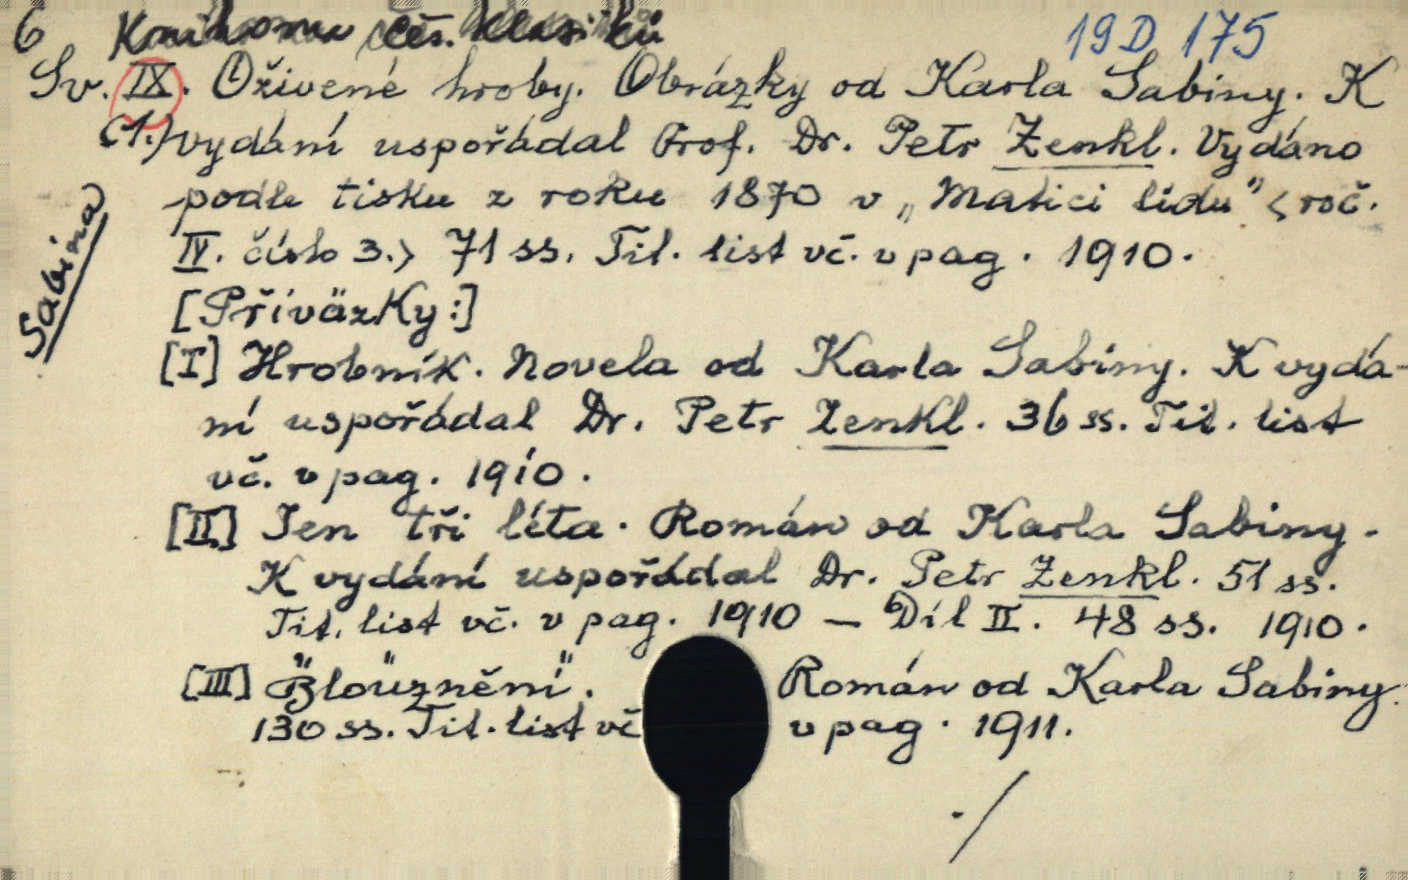 6 Knihovna čes. klasiků 19 D 175
Sv. IX. Oživené hroby. Obrázky od Karla Sabiny. K
(1.) vydání uspořádal Prof. Dr. Petr Zenkl. Vydáno
podle tisku z roku 1870 v „Matici lidu" <roč.
IV. číslo 3.> 71 ss. Tit. list vč. v pag. 1910.
[Přívázky:]
[I] Hrobník. Novela od Karla Sabiny. K vydá-
ní uspořádal Dr. Petr Zenkl. 36 ss. Tit. list
vč. v pag. 1910.
[II] Jen tři léta. Román od Karla Sabiny.
K vydání uspořádal Dr. Petr Zenkl. 51 ss.
Tit. list vč. v pag. 1910 — Díl II. 48 ss. 1910.
[III] Blouznění. Román od Karla Sabiny
130 ss. Tit. list vč v pag. 1911.
Sabina